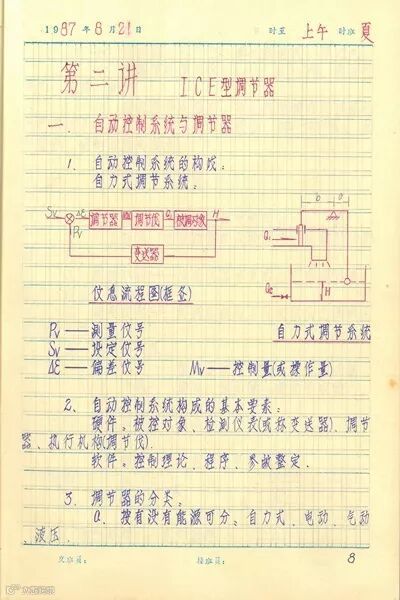 1987年8月21日 时至 上午 时班 夏
第二讲 ICE型调节器
一. 自动控制系统与调节器
1. 自动控制系统的构成:
自力式调节系统:
Sv Δε 调节器 调节伐 Qi 被调对象 H
Pv
变送器
b a
Q1
H
Q2
信息流程图(框图)
自力式调节系统
Pv——测量信号
Sv——设定信号
Δε——偏差信号 Mv——控制量(或操作量)
2. 自动控制系统构成的基本要素:
硬件: 被控对象、检测仪表(或称变送器)、调节
器、执行机构(调节伐)
软件: 控制理论、程序、参数整定.
3. 调节器的分类:
a. 按有没有能源可分: 自力式、电动、气动
液压.
交班员: 接班员: 8